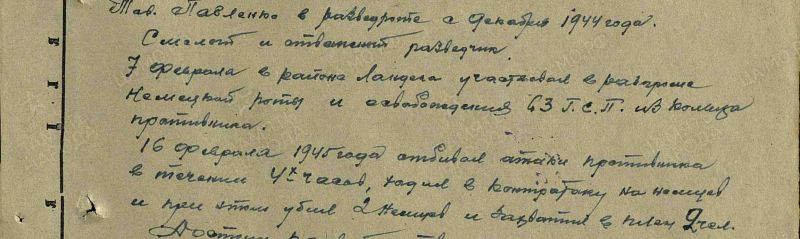 Тов. Павленко в разведроте с декабря 1944 года.
Смелый и отважный разведчик.
7 февраля в районе Ландега участвовал в разгроме
немецкой роты и освобождения 63 Г.С.П. из кольца
противника.
16 февраля 1945 года отбивал атаки противника
в течении 4х часов, ходил в контратаку на немцев
и при этом убил 2 немцев и захватил в плен 2 чел.